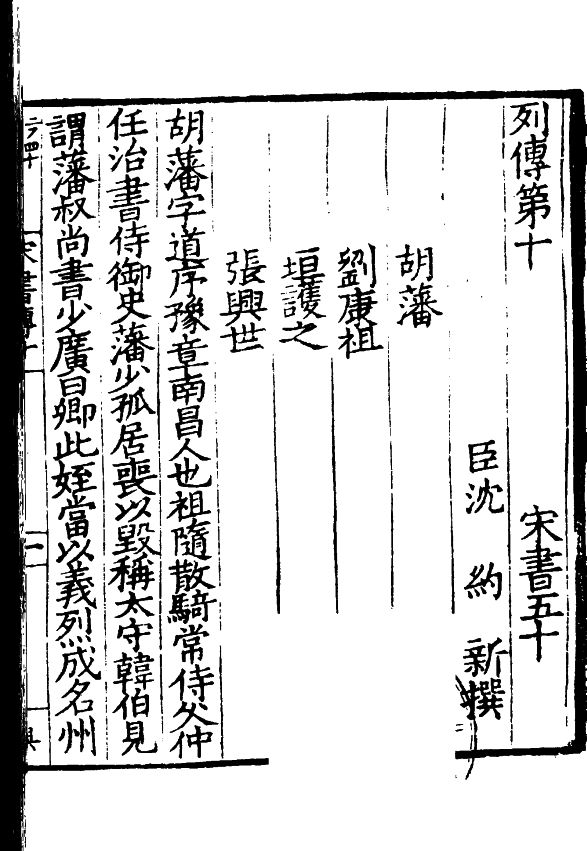 列傳第十 宋書五十
臣沈約新撰
胡藩
劉康祖
垣護之
張興世
胡藩字道序豫章南昌人也祖隨散騎常侍父仲
任治書侍御史藩少孤居喪以毀稱太守韓伯見
謂藩叔尚書少廣曰卿此姪當以義烈成名州
宋書傳十